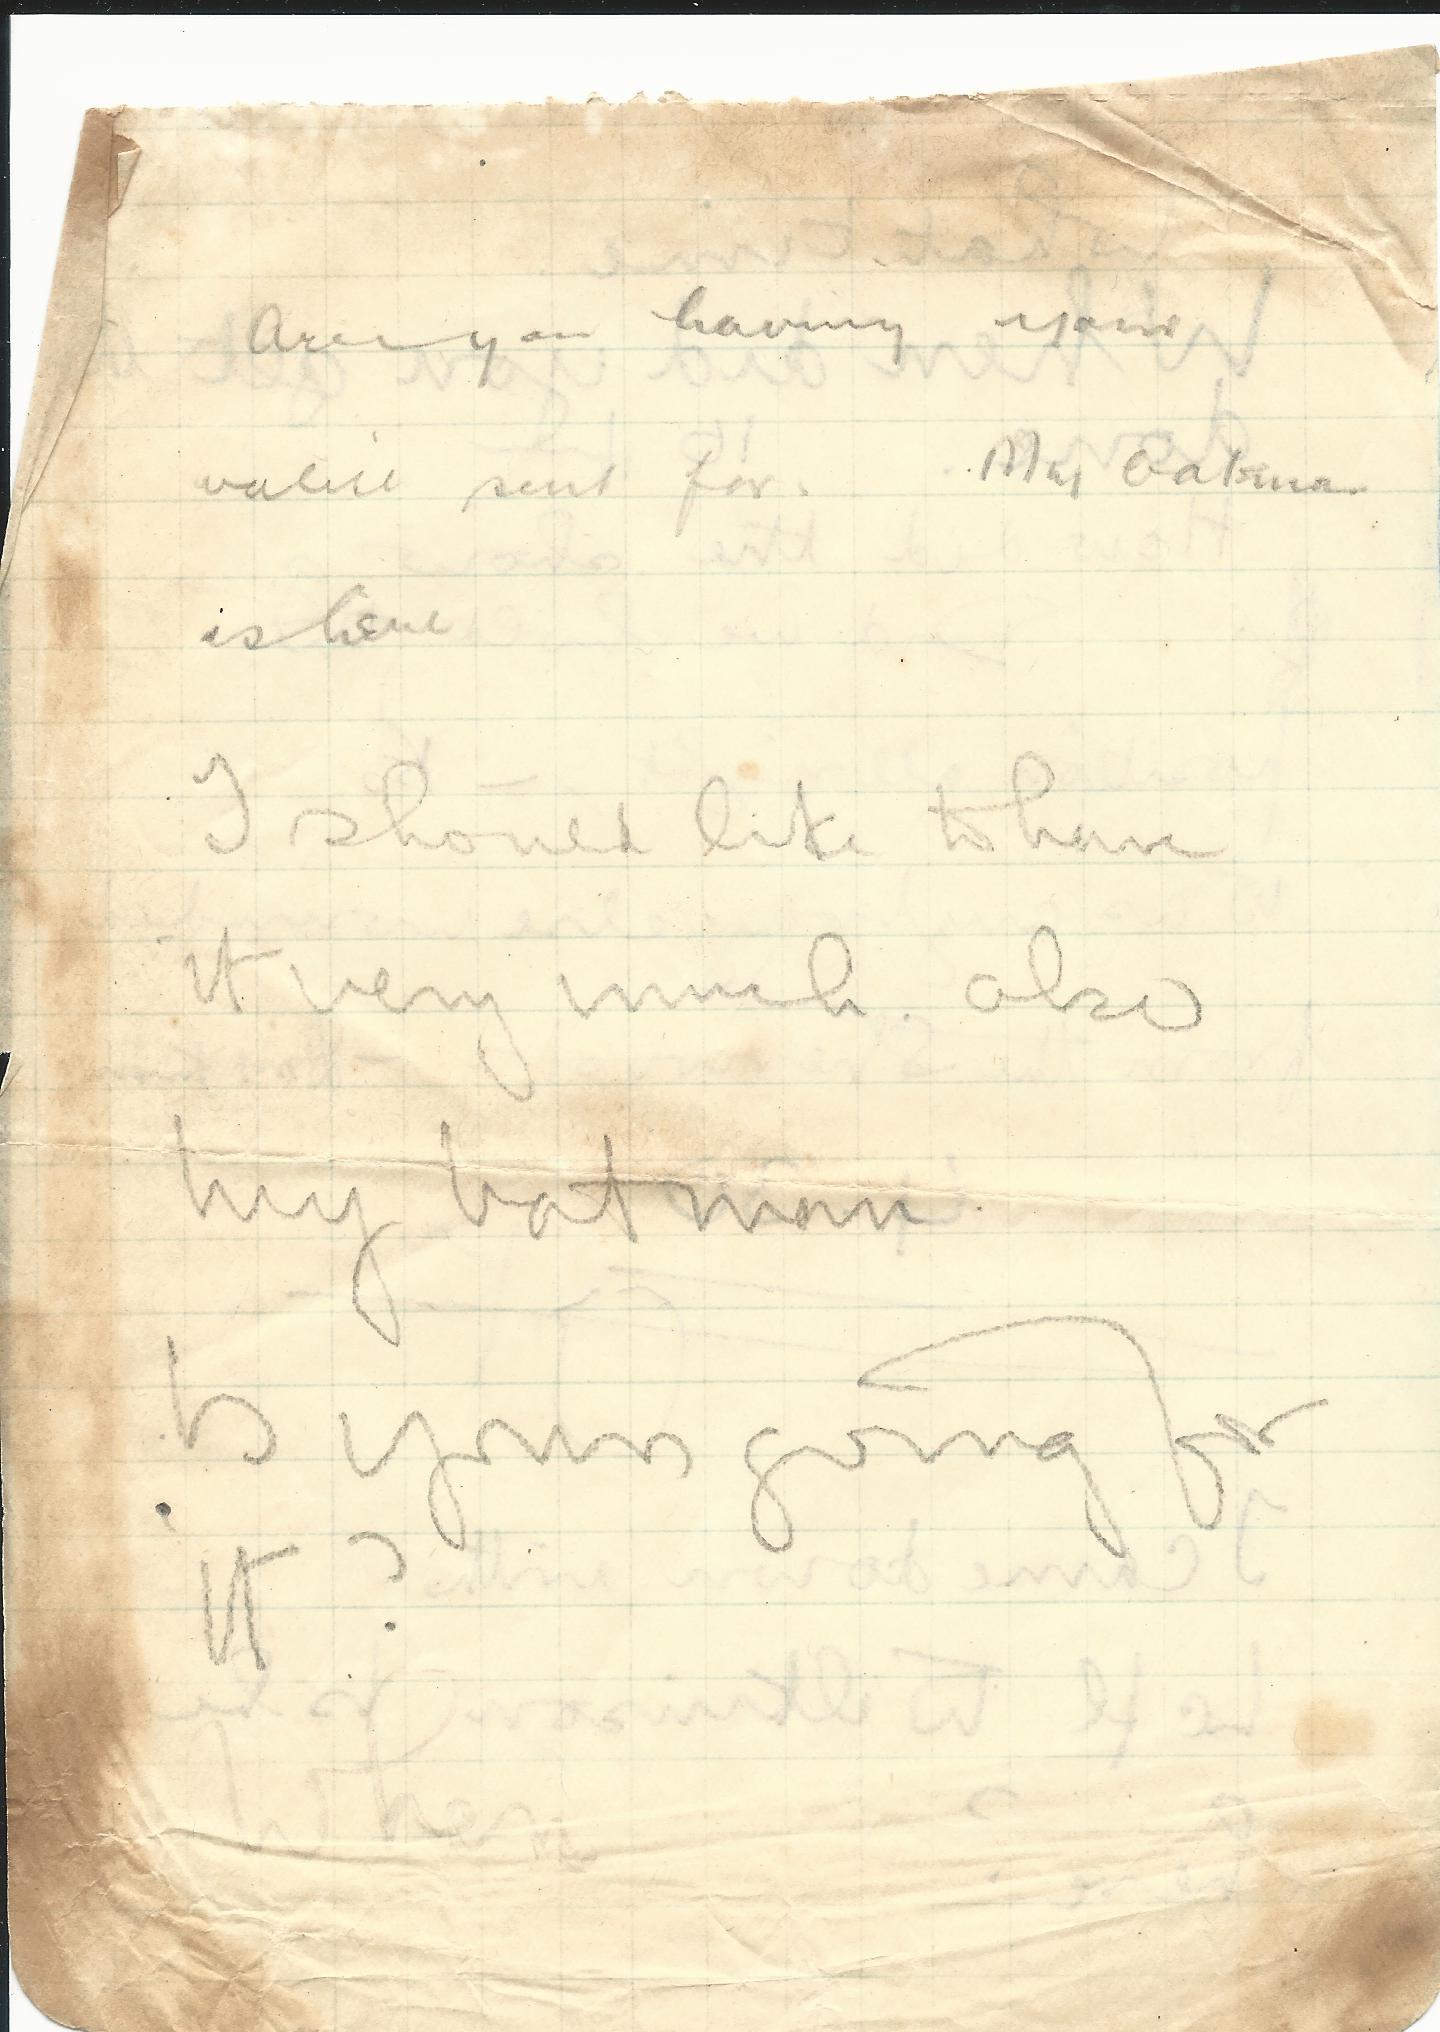 Are you having your
valise sent for. Maj
is here
I should like to have
it very much. also
my batman.
Is yours going for
it?